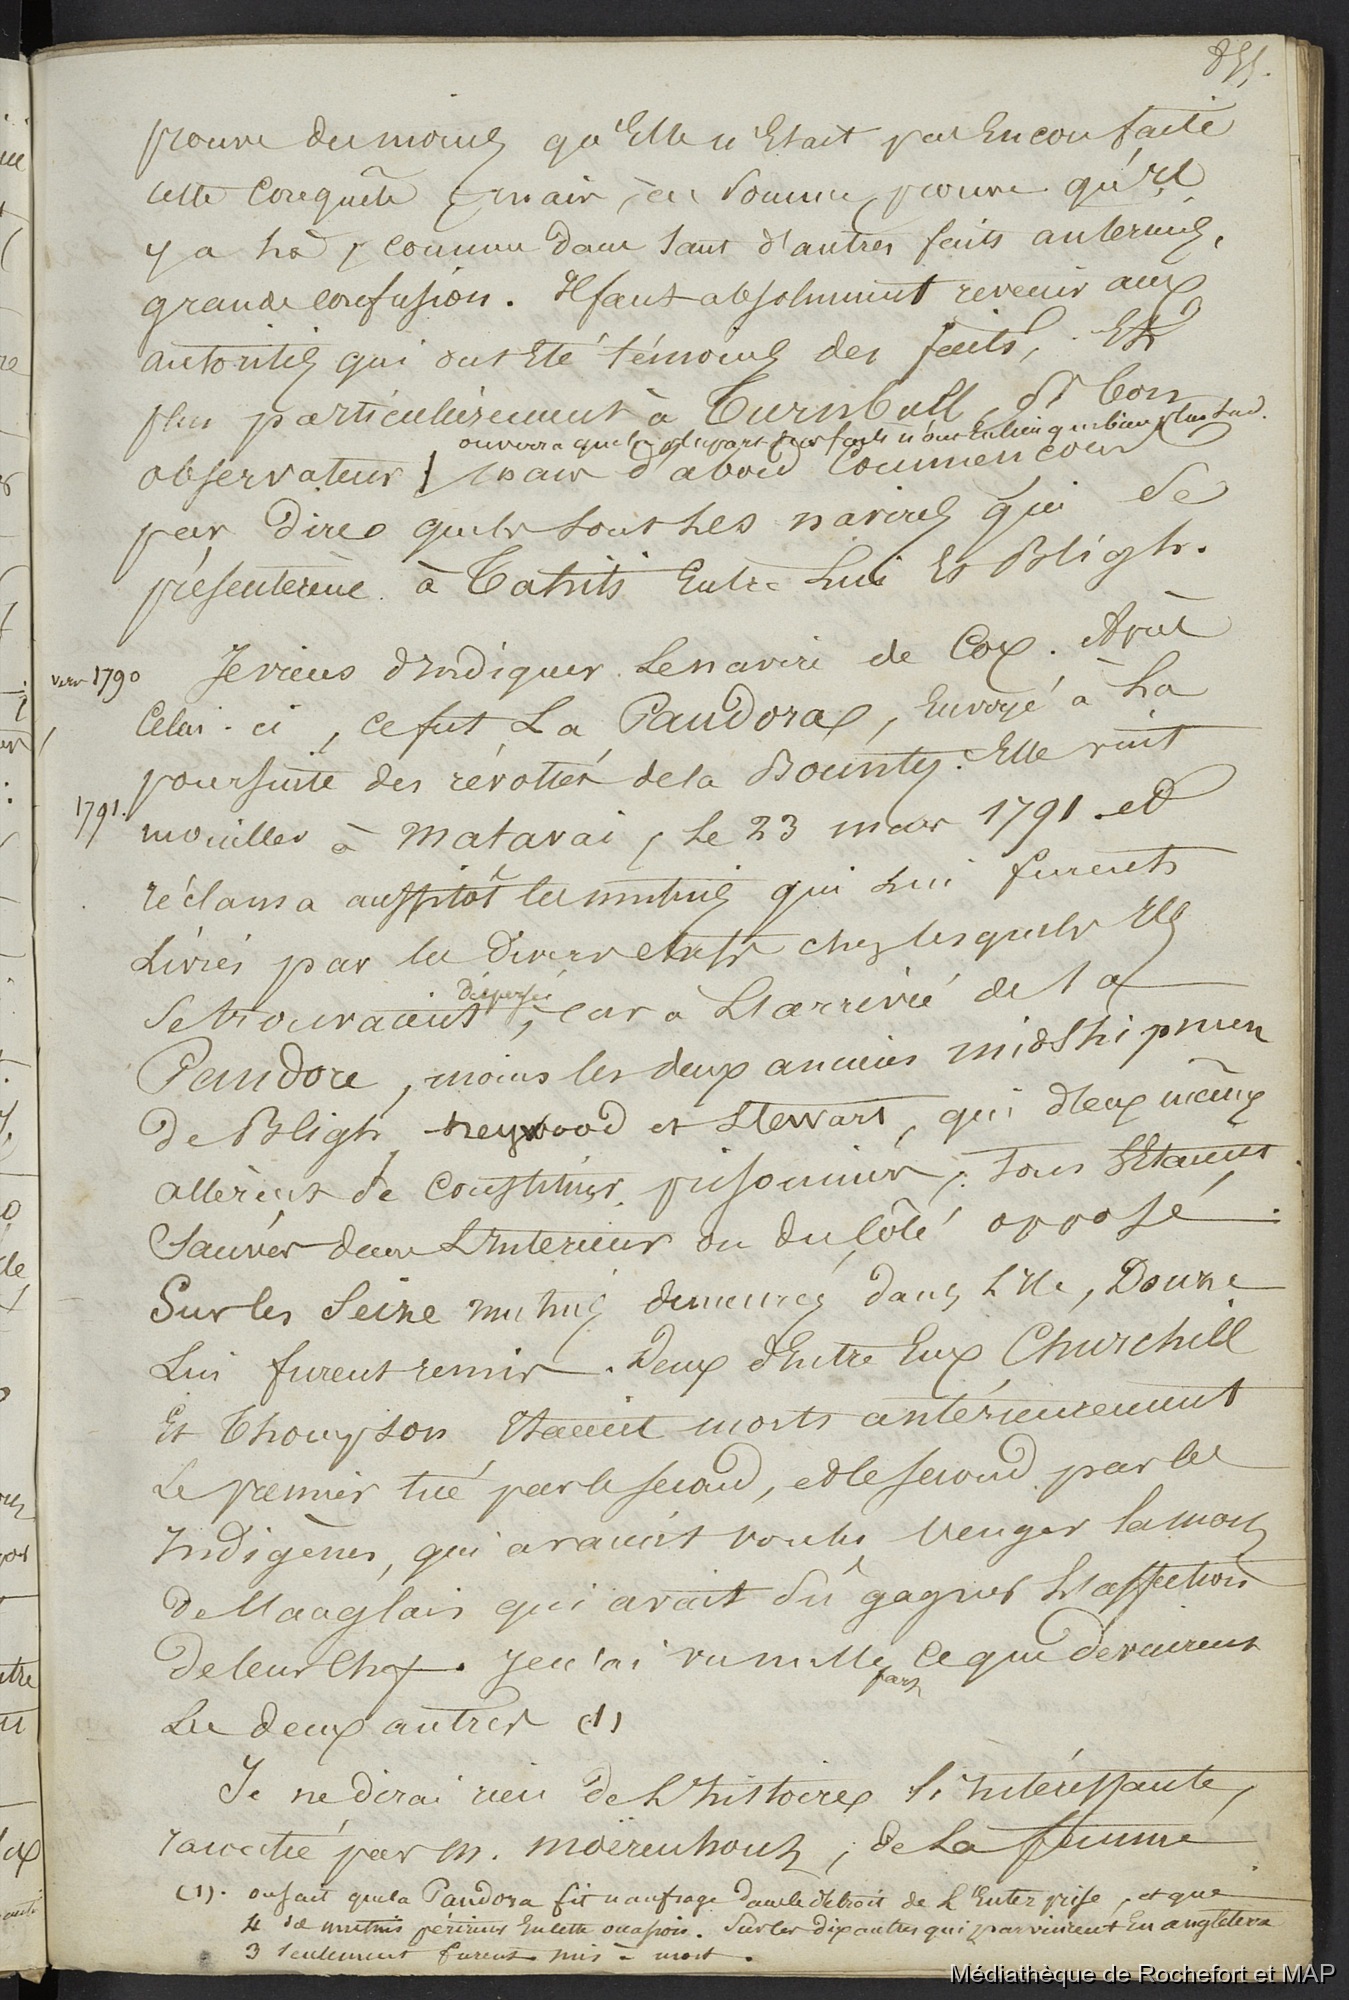 851.
prouve du moins qu'Elle n'Etait pas Encore faite
cette Conquête, mais, en somme, prouve qu'il
y a là, comme dans tant d'autres faits anterieurs,
grande confusion. Il faut absolument revenir aux
autorités qui ont Eté témoins des faits, Et
plus particulierement à Turnbull, si bon
on verra que la plupart des faits n'ont Eu lieu que bien plus tard.
observateur, mais d'abord Commencons
par dire quels sont Les navires qui se
présenterent à Tahiti Entre Lui Et Bligh.
vers 1790
Je viens d'Indiquer Le navire de Cox. Après
Celui-ci, ce fut La Pandora, Envoyé à La
poursuite des révoltés de la Bounty. Elle vint
1791.
mouiller à Matavai, Le 23 mars 1791 et
réclama aussitôt les mutins qui Lui furent
Livrés par les divers chefs chez lesquels Ils
dispersés
se trouvaient, car à L'arrivée de la
Pandore, moins les deux anciens midshipmen
de Bligh heywood et Stewart, qui d'eux mêmes
allèrent se constituer prisonniers, tous s'Etaient
Sauvés dans L'Interieur ou du côté opposé.
Sur les Seize mutins demeurés dans L'Ile, Douze
Lui furent remis. Deux d'Entre Eux, Churchill
Et Thompson Etaient morts antérieurement
Le premier tué par le second, et le second par les
Indigènes, qui avaient voulu venger la mort
De l'anglais qui avait su gagner L'affection
De leur Chef. Je n'ai vu nulle part Ce que devinrent
Les deux autres (1)
Je ne dirai rien de L'histoire si Intéressante,
racontée par M. Moërenhout, de La femme
(1). on sait que la Pandora fit naufrage dans le détroit de L'Entreprise, et que
4 des mutins périrent En cette occasion. Sur les dix autres qui parvinrent En angleterre
3 seulement furent mis à mort.
Médiathèque de Rochefort et MAP